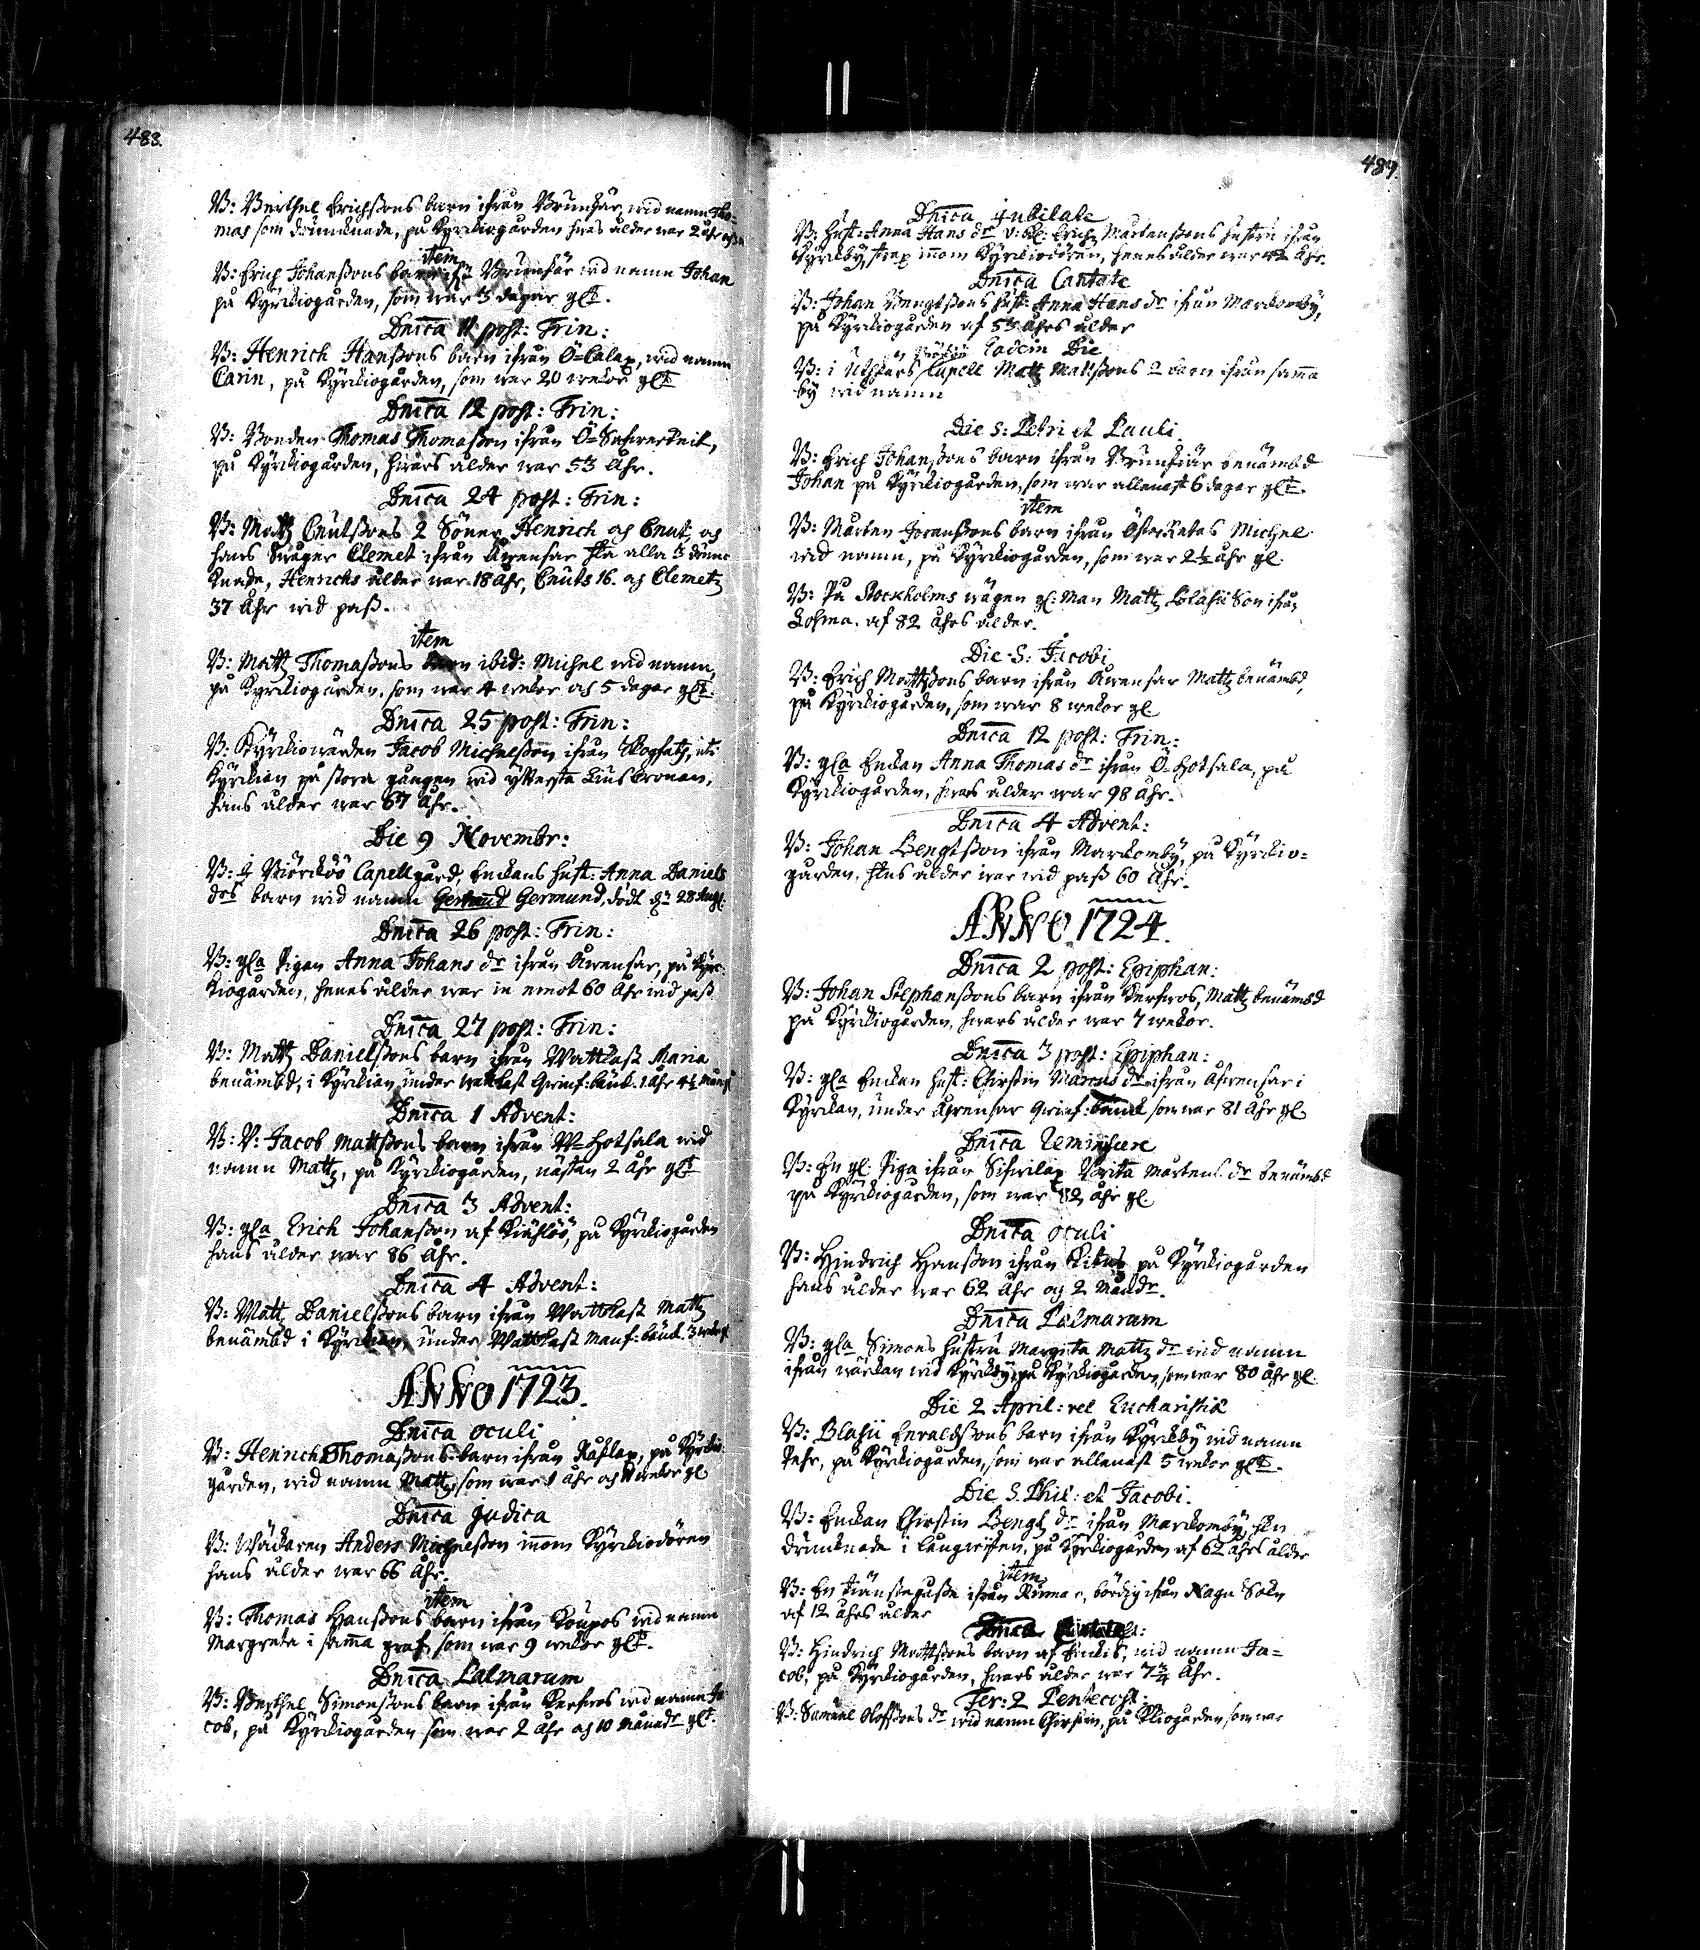 483.
B: Berthel Erichßons barn ifrån Brunskär, wid namn Tho-
mas som drunknade, på Kyrkiogården hwars ålder war 2 åhr
item
B: Erich Johanßons barn ifr Brunskär wid namn Johan
på Kyrkiogården, som war 3 dagar glt.
Dnica 11 post: Trin:
B: Henrich Hanßons barn ifrån Ö=Calax, wid namn
Carin, på Kyrkiogården, som war 20 wekor glt
Dnica 12 post: Trin:
B: Bonden Thomas Thomaßon ifrån Ö=
på Kyrkiogården, hwars ålder war 53 Åhr.
Dnica 24 post: Trin:
B: Matz Cnutßons 2 Söner Henrich och Cnut, och
hans Swåger Clemet ifrån Åwensar alla 3 drun-
knade, Henrichs ålder war 18 Åhr, Cnuts 16. och Clemetz
37 Åhr wid paß.
item
B: Matz Thomaßons barn ibid: Michel wid namn,
på Kyrkiogården, som war 4 wekor och 5 dagar glt
Dnica 25 post: Trin:
B: Kyrkiowärden Jacob Michelßon ifrån Skogsatz, uti
Kyrkian på stora gången wid ytterste Lius Cronan,
hans ålder war 67 Åhr.
Die 9 Novembr:
B: Biörköö Capellgård, Enckans hust: Anna Daniels
drs barn wid namn Germund, födt 28 Aug.
Dnica 26 post: Trin:
B: gla Pigan Anna Johans dr ifrån Åwensar, på Kyr-
kiogården, henes ålder war in emot 60 Åhr wid paß
Dnica 27 post: Trin:
B: Matz Danielßons barn ifrån Wattkast Maria
benämbd, i Kyrkian under Wattkast Qwinf: bänk. 1 Åhr 4½
Dnica 1 Advent:
B: V: Jacob Mattßons barn ifrån W=Hotsala wid
namn Matz, på Kyrkiogården, nästan 2 Åhr glt
Dnica 3 Advent:
B: gla Erich Johanßon af på Kyrkiogården
hans ålder war 86 Åhr.
Dnica 4 Advent:
B: Matz Danielßons barn ifrån Wattkast Matz
benämbd i Kyrkian, under Wattkast Manf: bänk. 3
ANNO 1723.
Dnica oculi
B: Henrich Thomaßons barn ifrån Råfslax, på Kyrkio-
gården, wid namn Matz, som war 1 åhr och 11 wekor gl
Dnica Judica
B: Anders Michelßon inom Kyrkiodören
hans ålder war 66 Åhr.
item
B: Thomas Hanßons barn ifrån Koupos wid namn
Margreta i samma graf, som war 9 wekor glt.
Dnica Palmarum
B: Berthel Simonßons barn ifrån wid namn Ja
cob, på Kyrkiogården som war 2 åhr och 10 månadr glt.
489.
Dnica Jubilate
B: Hust: Anna Hans dr Erich Mårtenßons hustru ifrån
Kyrkby, strax inom Kyrkiodören, henes ålder war 42 Åhr.
Dnica Cantate
B: Johan Bengtßons hust: Anna Hans dr ifrån Markomby,
på Kyrkiogården af 53 åhrs ålder
Eodem Die
B: i Utskärs Capell Matz Matßons 2 barn ifrån samma
by wid namn
Die S: Petri et Pauli
B: Erich Johanßons barn ifrån Brunskär benämbd
Johan på Kyrkiogården, som war allenast 6 dagar glt.
item
B: Mårten Joranßons barn ifrån Österretas Michel
wid namn, på Kyrkiogården, som war 2½ åhr gl.
B: På Stockholms wägen gl: Man Matz Blasii Son ifrån
Lohma. af 82 Åhrs ålder.
Die S: Jacobi
B: Erich Mattßons barn ifrån Åwensar Matz benämbd,
på Kyrkiogården, som war 8 wekor gl
Dnica 12 post: Trin:
B: gla Enckan Anna Thomas dr ifrån Ö-Hotsala, på
Kyrkiogården, hwars ålder war 98 Åhr.
Dnica 4 Advent:
B: Johan Bengtßon ifrån Markomby, på Kyrkio=
gården, ålder war wid paß 60 Åhr.
ANNO 1724.
Dnica 2 post: Epiphan:
B: Johan Stephanßons barn ifrån Matz benämbd
på Kyrkiogården, hwars ålder war 7 wekor.
Dnica 3 post: Epiphan:
B: gla Enckan hust: Chirstin Marcus dr ifrån Åfwensar i
Kyrkan, under Åfwensar Qwinf: bänck som war 81 Åhr gl
Dnica Reminiscere
B: En gl: Piga ifrån Brita Mårtens dr benämbd
på Kyrkiogården, som war 82 åhr gl
Dnica oculi
B: Hindrich Hanßon ifrån Kitus på Kyrkiogården
hans ålder war 62 åhr och 2 Månadr.
Dnica Palmarum
B: gla Simons Hustru Margeta Matz dr wid namn
ifrån wid Kyrkby, på Kyrkiogården, som war 80 Åhr gl.
Die 2 April: vel Eucharistiæ
B: Blasii barn ifrån Kyrkby wid namn
Pehr, på Kyrkiogården, som war allenast 5 wekor glt.
Die S. Phil: et Jacobi.
B: Enckan Chirstin Bengtz dr ifrån Markomby,
drunknade i på Kyrkiogården af 62 åhrs ålder
item
B: En ifrån Rumar, bördig ifrån Nagu Sokn
af 12 åhrs ålder
B: Hindrich Mattßons barn af Finkis, wid namn Ja=
cob, på Kyrkiogården, hwars ålder war 7¾ Åhr.
Fer: 2 Pentecost:
B: Samuel Olofßons dr wid namn Chirstin, på Kkiogården som war